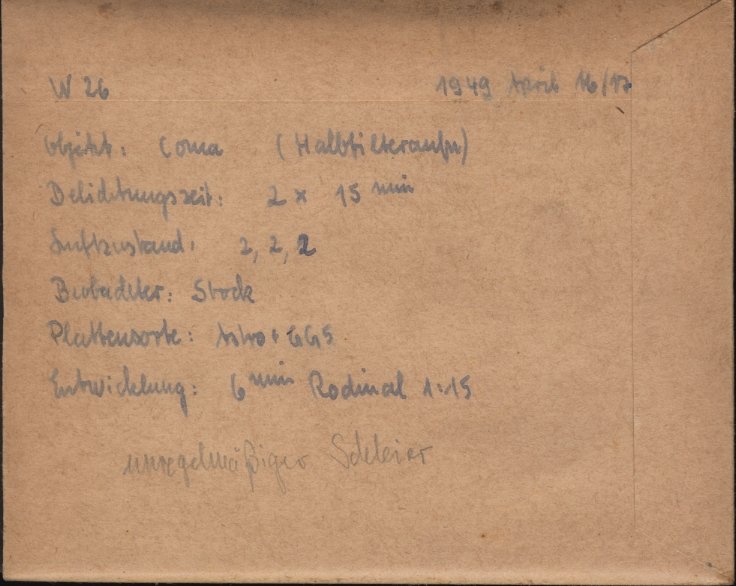 W 26 1949 April 16/17
Objekt: Coma (Halbfilteraufn)
Belichtungszeit: 2 x 15 min
Luftzustand: 2, 2, 2
Beobachter: Stock
Plattensorte: Astro + GG5
Entwicklung: 6 min Rodinal 1:15
unregelmäßiger Schleier